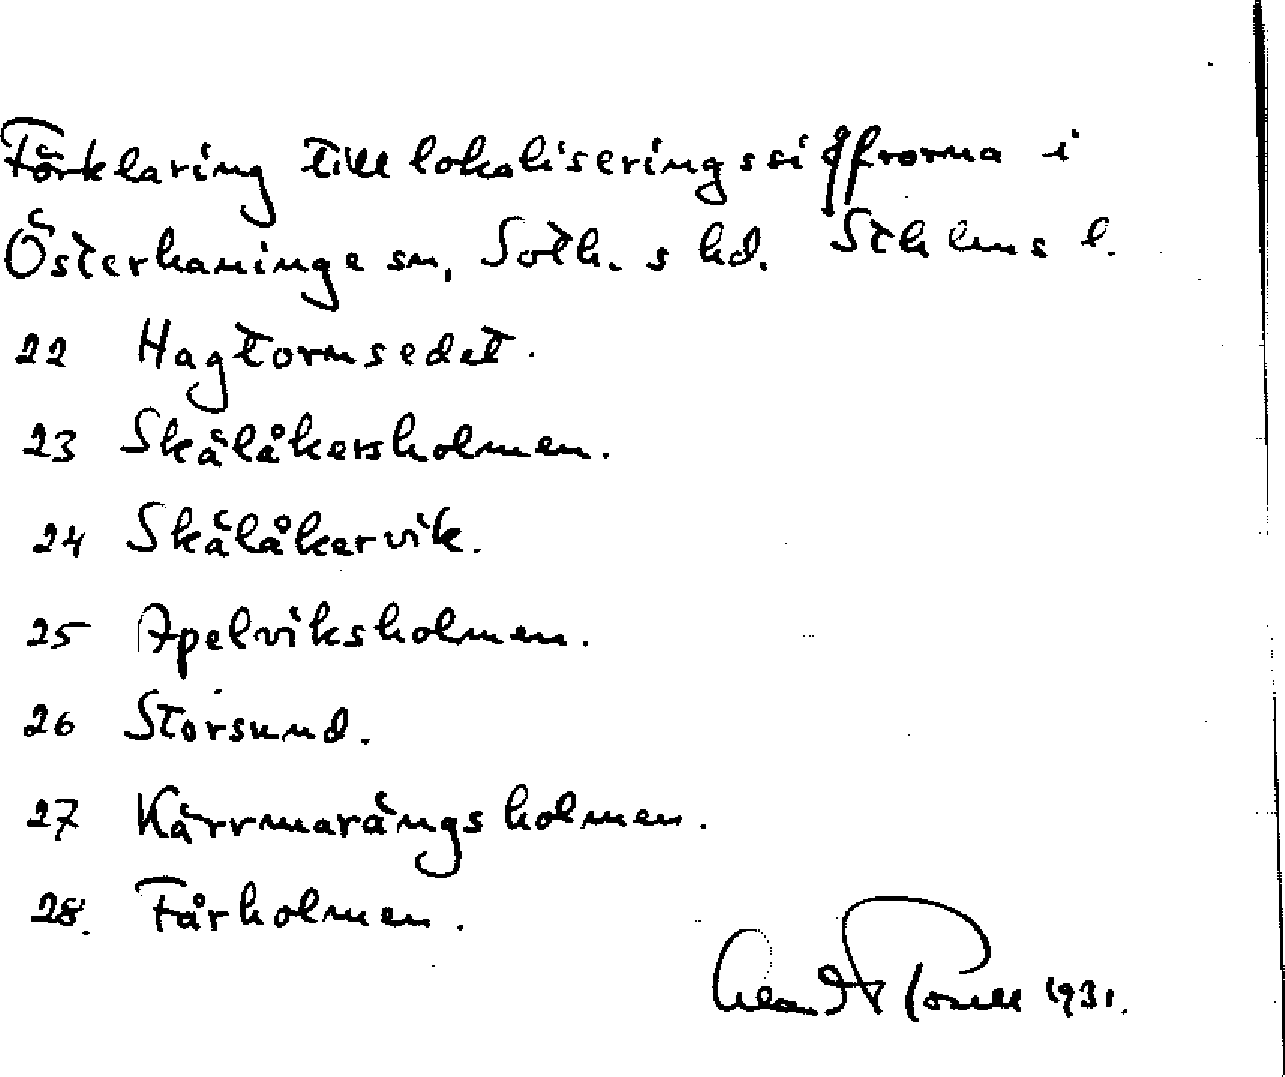 Förklaring till lokaliseringssiffrorna i
Österhaninge sn, Soth. s hd. Sthlms l.
22 Hagtornsedet.
23 Skälåkersholmen.
24 Skälåkervik.
25 Apelviksholmen.
26 Storsund.
27 Kärrmarängsholmen.
28. Fårholmen.
1931.